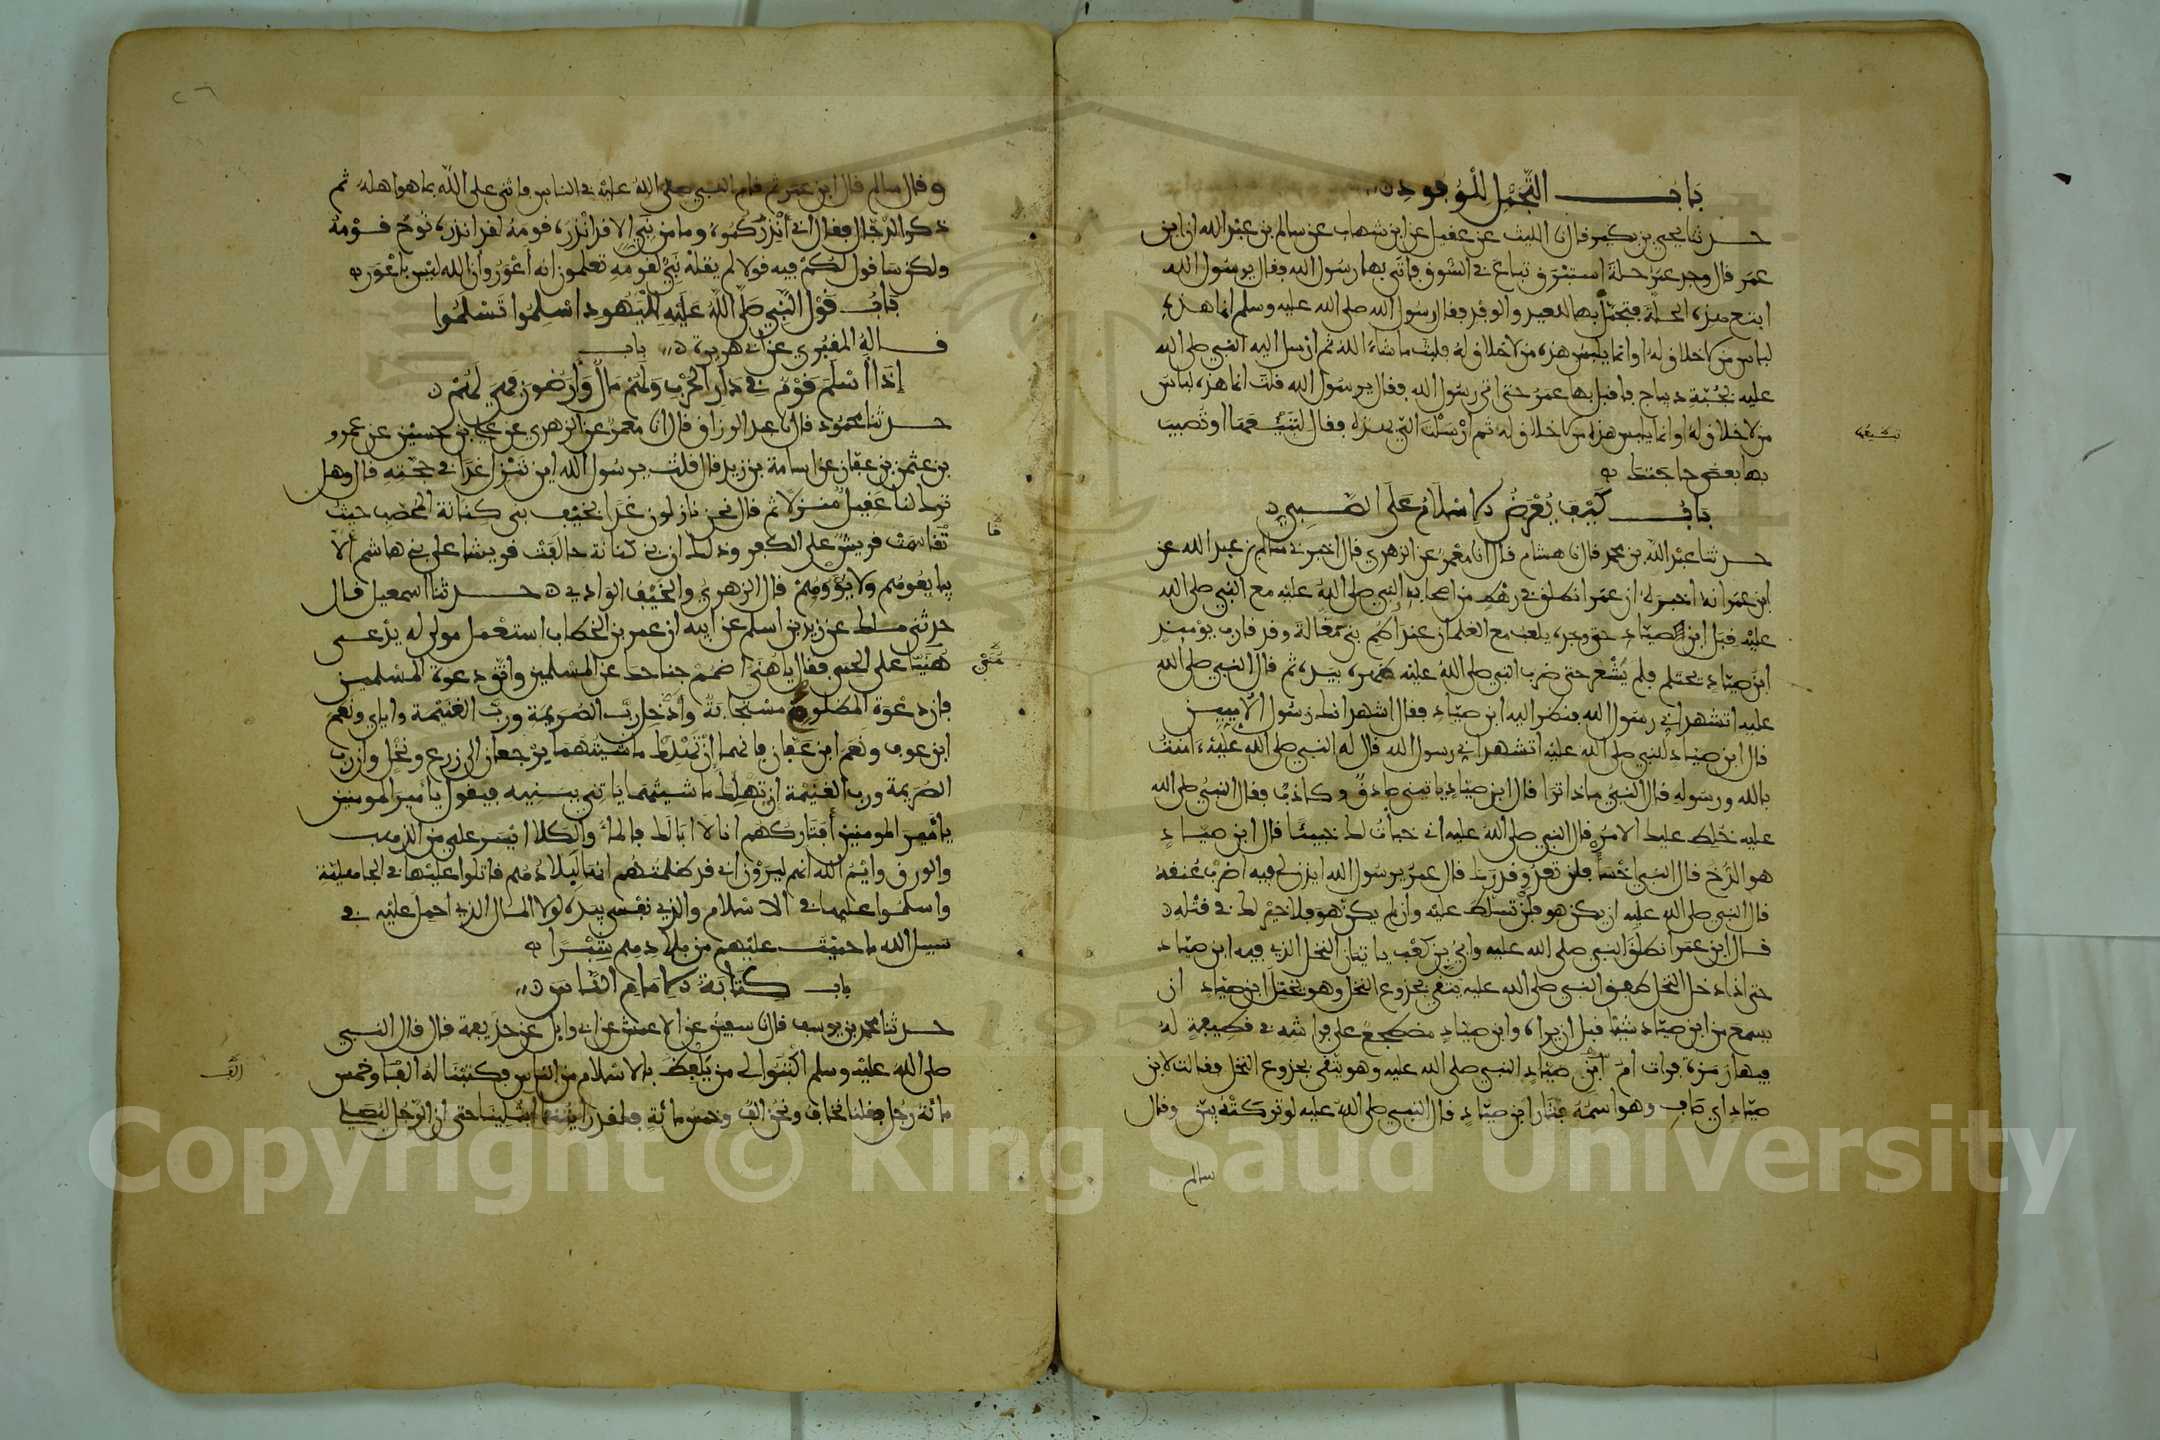 باب التجمل للوفود
حدثنا يحيى بن بكير قال نا الليث عن عقيل عن ابن شهاب عن سالم بن عبد الله ان ابن
عمر قال وجد عمر حلة استبرق تباع في السوق فاتى بها رسول الله فقال يرسول الله
ابتع هذه الحلة فتجمل بها للعيد والوفد فقال رسول الله صلى الله عليه وسلم انما هذه
لباس من لا خلاق له او انما يلبس هذه من لا خلاق له فلبث ما شاء الله ثم ارسل اليه النبي صلى الله
عليه بجبة ديباج فاقبل بها عمر حتى اتى رسول الله فقال يرسول الله قلت انما هذه لباس
من لا خلاق له او انما يلبس هذه من لا خلاق له ثم ارسلت الي بهذه فقال تبيعها او تصيب
بها بعض حاجتك
تبيعها
باب كيف يعرض الاسلام على الصبي
حدثنا عبد الله بن محمد قال نا هشام قال انا معمر عن الزهري قال اخبرني سالم بن عبد الله عن
ابن عمر انه اخبره ان عمر انطلق في رهط من اصحاب النبي صلى الله عليه مع النبي صلى الله
عليه قبل ابن الصياد حتى وجده يلعب مع الغلمان عند اطم بني مغالة وقد قارب يومئذ
ابن صياد يحتلم فلم يشعر حتى ضرب النبي صلى الله عليه ظهره بيده ثم قال النبي صلى الله
عليه اتشهد اني رسول الله فنظر اليه ابن صياد فقال اشهد انك رسول الاميين
قال ابن صياد للنبي صلى الله عليه اتشهد اني رسول الله قال له النبي صلى الله عليه امنت
بالله ورسوله قال النبي ماذا ترا قال ابن صياد ياتيني صادق وكاذب فقال النبي صلى الله
عليه خلط عليك الامر قال النبي صلى الله عليه اني خبات لك خبيئا قال ابن صياد
هو الدخ قال النبي اخسا فلن تعدو قدرك قال عمر يرسول الله ايذن لي فيه اضرب عنقه
قال النبي صلى الله عليه ان يكن هو فلن تسلط عليه وان لم يكن هو فلا خير لك في قتله
قال ابن عمر انطلق النبي صلى الله عليه وابي بن كعب ياتيان النخل الذي فيه ابن صياد
حتى اذا دخل النخل طفق النبي صلى الله عليه يتقي بجذوع النخل وهو يختل ابن صياد ان
يسمع من ابن صياد شيئا قبل ان يراه وابن صياد مضطجع على فراشه في قطيفة له
فيها رمزة فرات ام ابن صياد النبي صلى الله عليه وهو يتقي بجذوع النخل فقالت لابن
صياد اي صاف وهو اسمه فثار ابن صياد قال النبي صلى الله عليه لو تركته بين وقال
سالم
وقال سالم قال ابن عمر ثم قام النبي صلى الله عليه في الناس فاثنى على الله بما هو اهله ثم
ذكر الدجال فقال اني انذركموه وما من نبي الا قد انذره قومه لقد انذره نوح قومه
ولكن ساقول لكم فيه قولا لم يقله نبي لقومه تعلمون انه اعور وان الله ليس باعور
باب قول النبي صلى الله عليه لليهود اسلموا تسلموا
قاله المقبري عن ابي هريرة باب
اذا اسلم قوم في دار الحرب ولهم مال وارضون فهي لهم
حدثنا محمود قال نا عبد الرزاق قال انا معمر عن الزهري عن علي بن حسين عن عمرو
بن عثمن بن عفان عن اسامة بن زيد قال قلت يرسول الله اين تنزل غدا في حجته قال وهل
ترك لنا عقيل منزلا ثم قال نحن نازلون غدا بخيف بني كنانة المحصب حيث
تقاسمت قريش على الكفر وذلك ان بني كنانة حالفت قريشا على بني هاشم الا
يبايعوهم ولا يؤووهم قال الزهري والخيف الوادي حدثنا اسمعيل قال
حدثني ملك عن زيد بن اسلم عن ابيه ان عمر بن الخطاب استعمل مولى له يدعى
هنيا على الحمى فقال يا هني اضمم جناحك عن المسلمين واتق دعوة المسلمين
فان دعوة المظلوم مستجابة وادخل رب الصريمة ورب الغنيمة واياي ونعم
ابن عوف ونعم ابن عفان فانهما ان تهلك ماشيتهما يرجعان الى زرع ونخل وان رب
الصريمة ورب الغنيمة ان تهلك ماشيتهما ياتني ببنيه فيقول يا امير المومنين
يا امير المومنين افتاركهم انا لا ابا لك فالماء والكلا ايسر علي من الذهب
والورق وايم الله انهم ليرون اني قد ظلمتهم انها لبلادهم قاتلوا عليها في الجاهلية
واسلموا عليها في الاسلام والذي نفسي بيده لولا المال الذي احمل عليه في
سبيل الله ما حميت عليهم من بلادهم شبرا
باب كتابة الامام الناس
حدثنا محمد بن يوسف قال نا سفين عن الاعمش عن ابي وايل عن حذيفة قال قال النبي
صلى الله عليه وسلم اكتبوا لي من يلفظ بالاسلام من الناس فكتبنا له الفا وخمس
مائة رجل فقلنا نخاف ونحن الف وخمس مائة فلقد رايتنا ابتلينا حتى ان الرجل ليصلي
Copyright © King Saud University